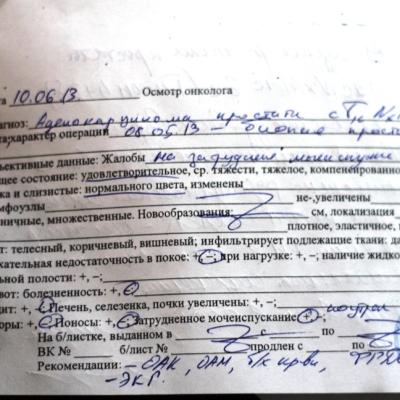 та 10.06.13 Осмотр онколога
агноз: Аденокарцинома простати cT1c Nx
та, характер операции 08.05.13 – биопсия прост
ъективные данные: Жалобы на затруднене мочеиспускание
щее состояние: удовлетворительное, ср. тяжести, тяжелое, компенсированно
ка и слизистые: нормального цвета, изменены
имфоузлы не-,увеличены
ничные, множественные. Новообразования: см, локализация
плотное, эластичное,
т: телесный, коричневый, вишневый; инфильтрирует подлежащие ткани: да
хательная недостаточность в покое: +,-; при нагрузке: +, -; наличие жидко
льной полости: +, -;
вот: болезненность: +,-
цит: +,-; Печень, селезенка, почки увеличены: +, -;
оры: +,-; Поносы: +,-; Затрудненное мочеиспускание: +,-
На б/листке, выданном в с по
ВК № б/лист № продлен с по
Рекомендации: - ОАК, ОАМ, б/х крови,
- ЭКГ.